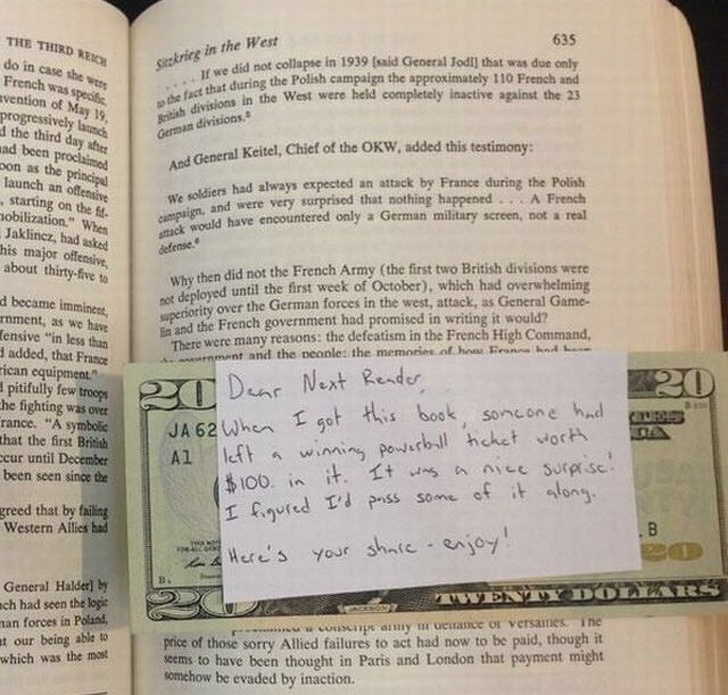 THE THIRD REICH
do in case she were
French was specific.
vention of May 19,
progressively launch
d the third day after
had been proclaimed
oon as the principal
launch an offensive
, starting on the fif-
mobilization." When
Jaklincz, had asked
his major offensive,
about thirty-five to
d became imminent,
rnment, as we have
fensive "in less than
d added, that France
rican equipment."
d pitifully few troops
the fighting was over
rance. "A symbolic
that the first British
ccur until December
been seen since the
greed that by failing
Western Allies had
General Halder] by
ach had seen the logic
man forces in Poland,
at our being able to
which was the most
Sitzkrieg in the West 635
. . . . If we did not collapse in 1939 [said General Jodl] that was due only
to the fact that during the Polish campaign the approximately 110 French and
British divisions in the West were held completely inactive against the 23
German divisions.
And General Keitel, Chief of the OKW, added this testimony:
We soldiers had always expected an attack by France during the Polish
campaign, and were very surprised that nothing happened . . . A French
attack would have encountered only a German military screen, not a real
defense.
Why then did not the French Army (the first two British divisions were
not deployed until the first week of October), which had overwhelming
superiority over the German forces in the west, attack, as General Game-
lin and the French government had promised in writing it would?
There were many reasons: the defeatism in the French High Command,
and the people; the memories of how France had been
20 20
JA 62
A1
Dear Next Reader,
When I got this book, someone had
left a winning powerball ticket worth
$100. in it. It was a nice surprise!
I figured I'd pass some of it along.
Here's your share - enjoy!
B
20
20 JACKSON TWENTY DOLLARS
conscript army in defiance of Versailles. The
price of those sorry Allied failures to act had now to be paid, though it
seems to have been thought in Paris and London that payment might
somehow be evaded by inaction.